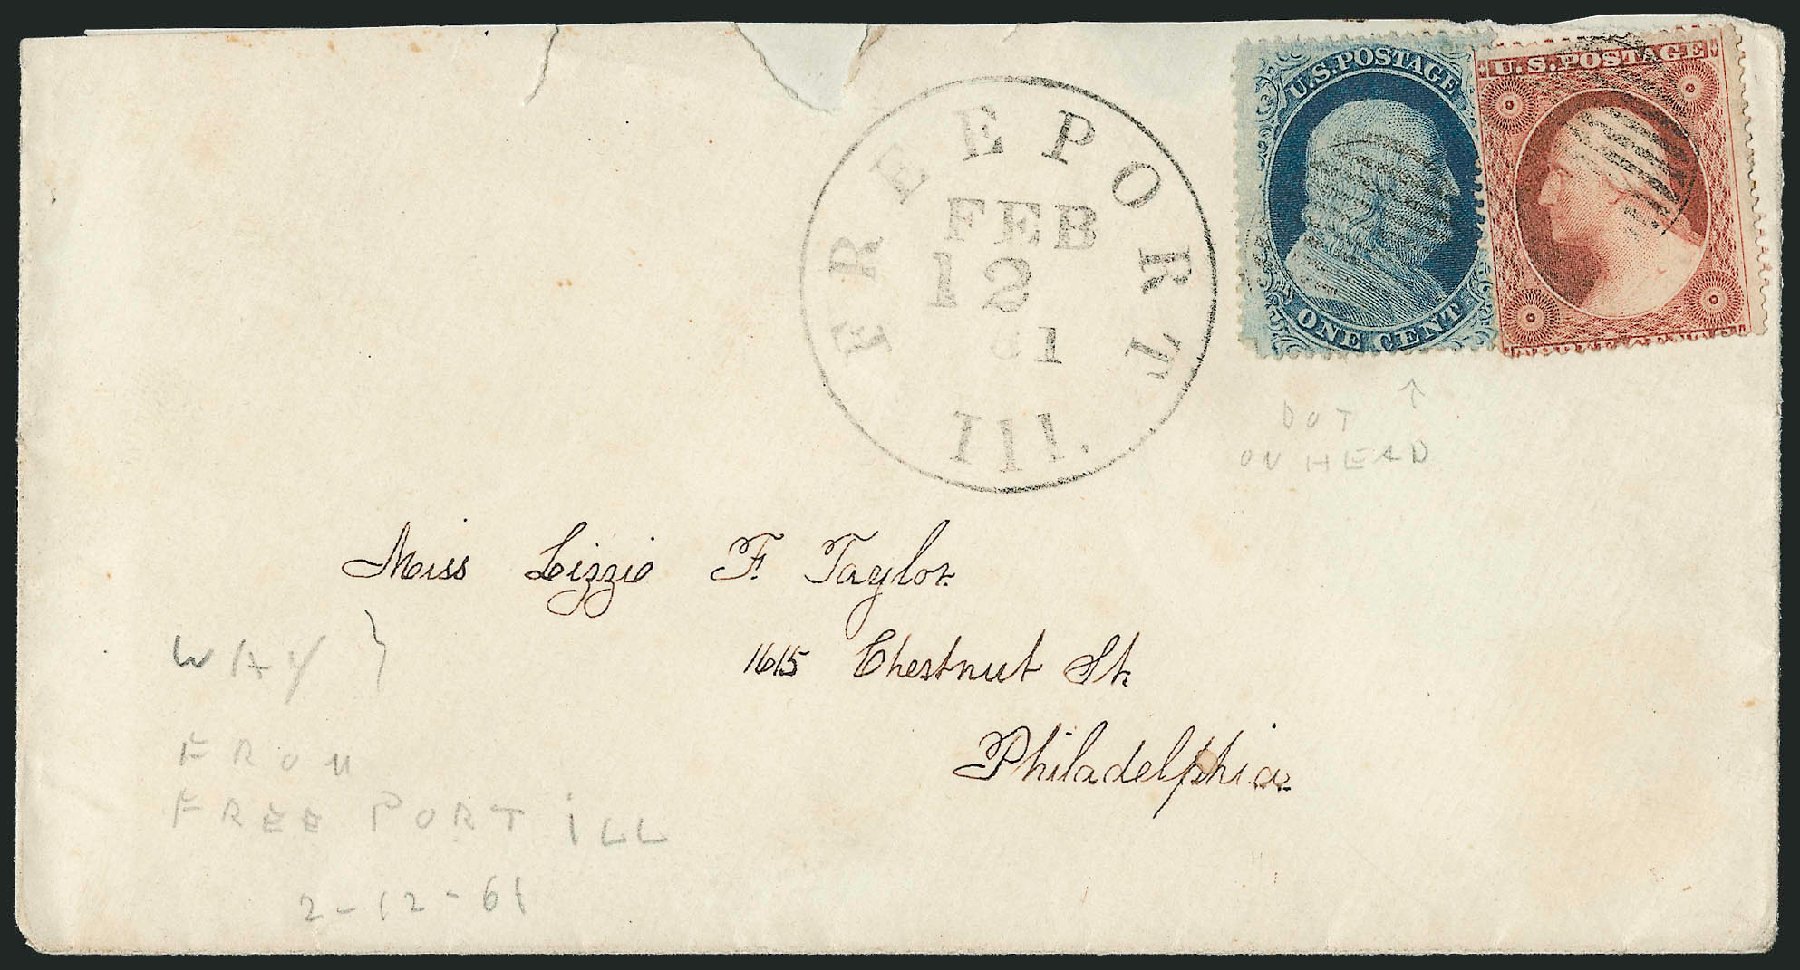 U.S. POSTAGE
ONE CENT
U.S. POSTAGE
FREEPORT
FEB
12
61
Ill.
DOT ↑
ON HEAD
Miss Lizzie F. Taylor
1615 Chestnut St.
Philadelphia
WAY }
FROM
FREE PORT ILL
2-12-61